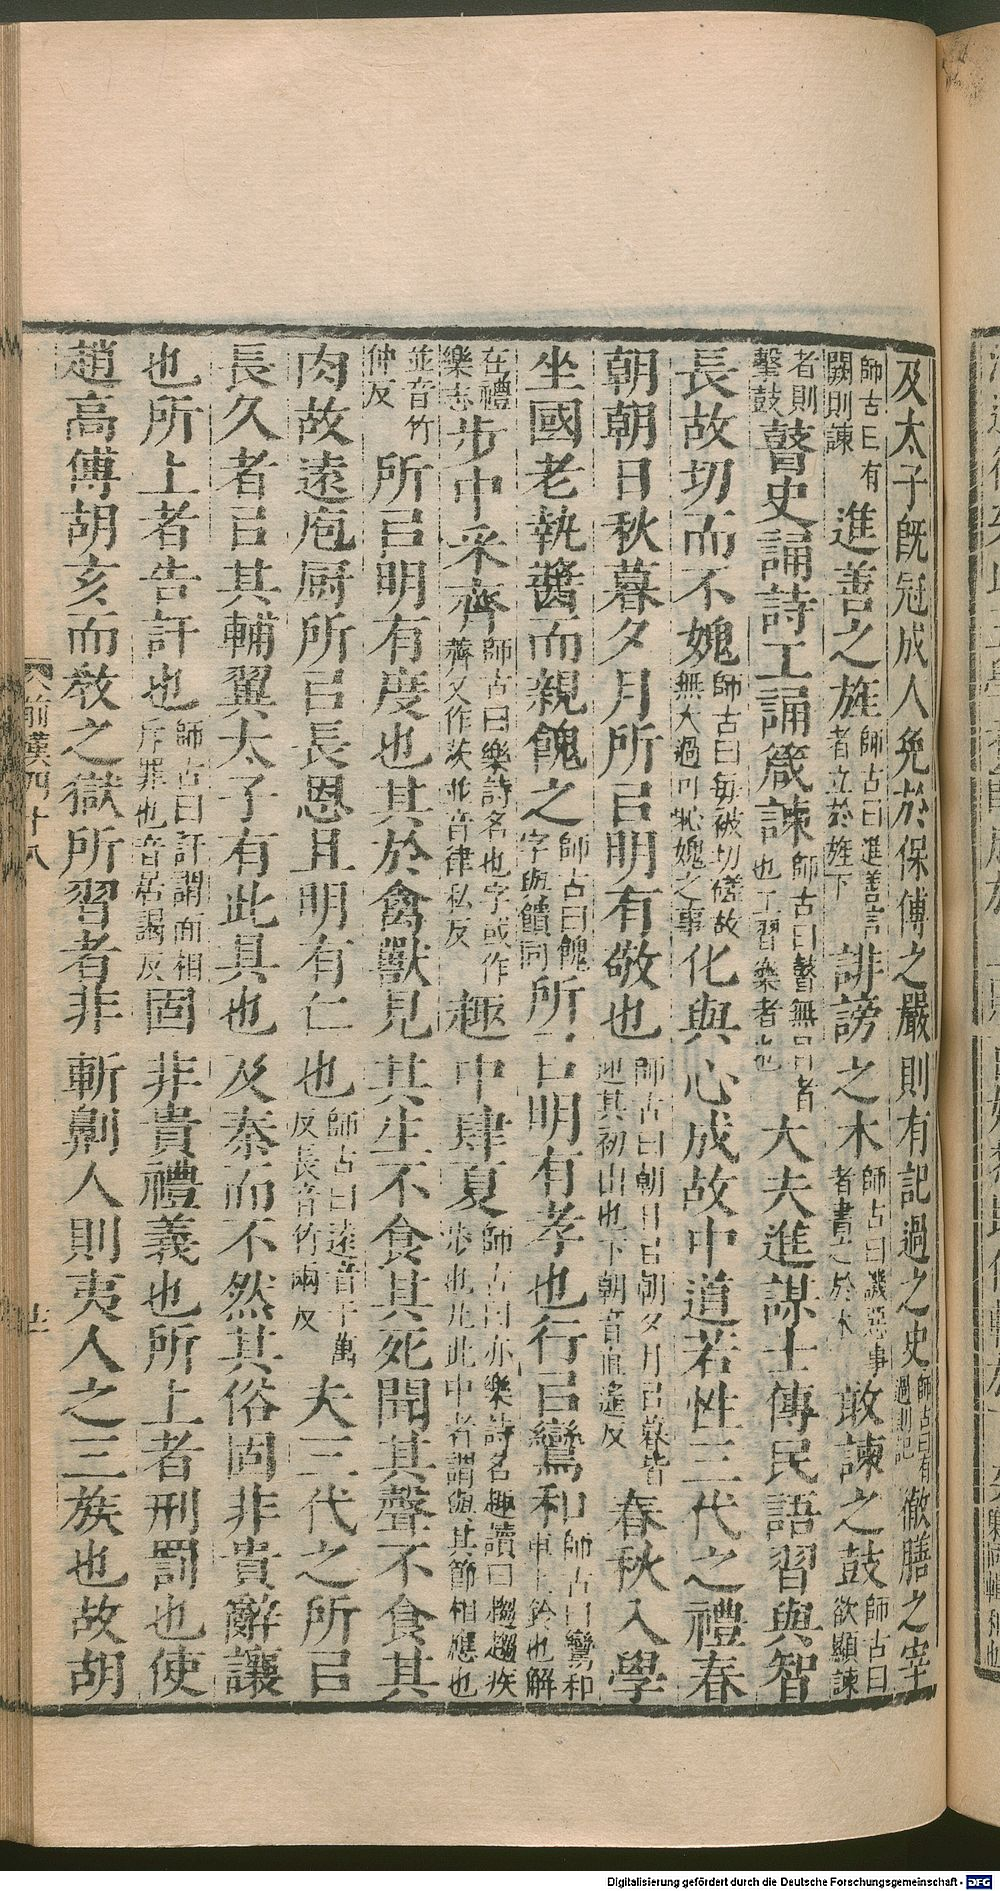 及太子既冠成人免於保傅之嚴則有記過之史師古曰有過則記徹膳之宰
師古曰有闕則諫進善之旌師古曰進善言者立於旌下誹謗之木師古曰譏惡事者書之於木敢諫之鼓師古曰欲顯諫
者則擊鼓瞽史誦詩工誦箴諫師古曰瞽無目者也工習樂者也大夫進謀士傳民語習與智
長故切而不媿師古曰每被切磋故無大過可恥媿之事化與心成故中道若性三代之禮春
朝朝日秋暮夕月所㠯明有敬也師古曰朝日㠯朝夕月㠯暮皆迎其初出也下朝音直遙反春秋入學
坐國老執醬而親餽之師古曰餽字與饋同所㠯明有孝也行㠯鸞和師古曰鸞和車上鈴也解
在禮樂志步中采齊師古曰樂詩名也字或作薺又作茨並音律私反趣中肆夏師古曰亦樂詩名趣讀曰趨趨疾步也凡此中者謂與其節相應也
並音竹仲反所㠯明有度也其於禽獸見其生不食其死聞其聲不食其
肉故遠庖厨所㠯長恩且明有仁也師古曰遠音于萬反長音竹兩反夫三代之所㠯
長久者㠯其輔翼太子有此具也及秦而不然其俗固非貴辭讓
也所上者告訐也師古曰訐謂面相斥罪也音居謁反固非貴禮義也所上者刑罰也使
趙高傅胡亥而敎之獄所習者非斬劓人則夷人之三族也故胡
前漢四十八
廿一
Digitalisierung gefördert durch die Deutsche Forschungsgemeinschaft - DFG